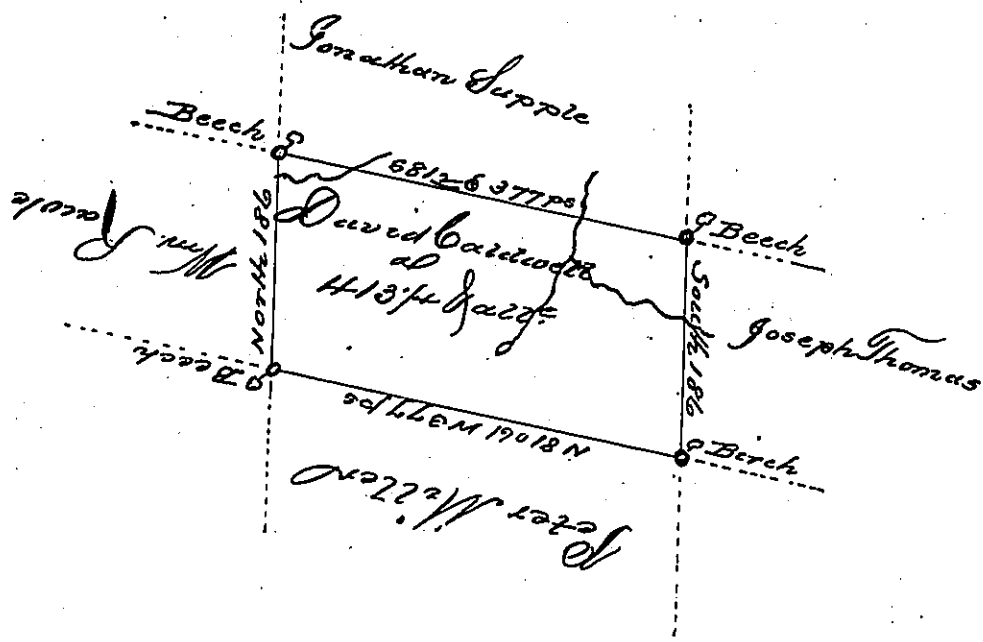 Jonathan Supple
Beech
S81½E 377ps
Beech
Wm. Rawle
North 186
David Caldwell
a
413¼ &all.ce
South 186
Joseph Thomas
Beech
N 81°61 W 377 ps
Birch
Peter Miller